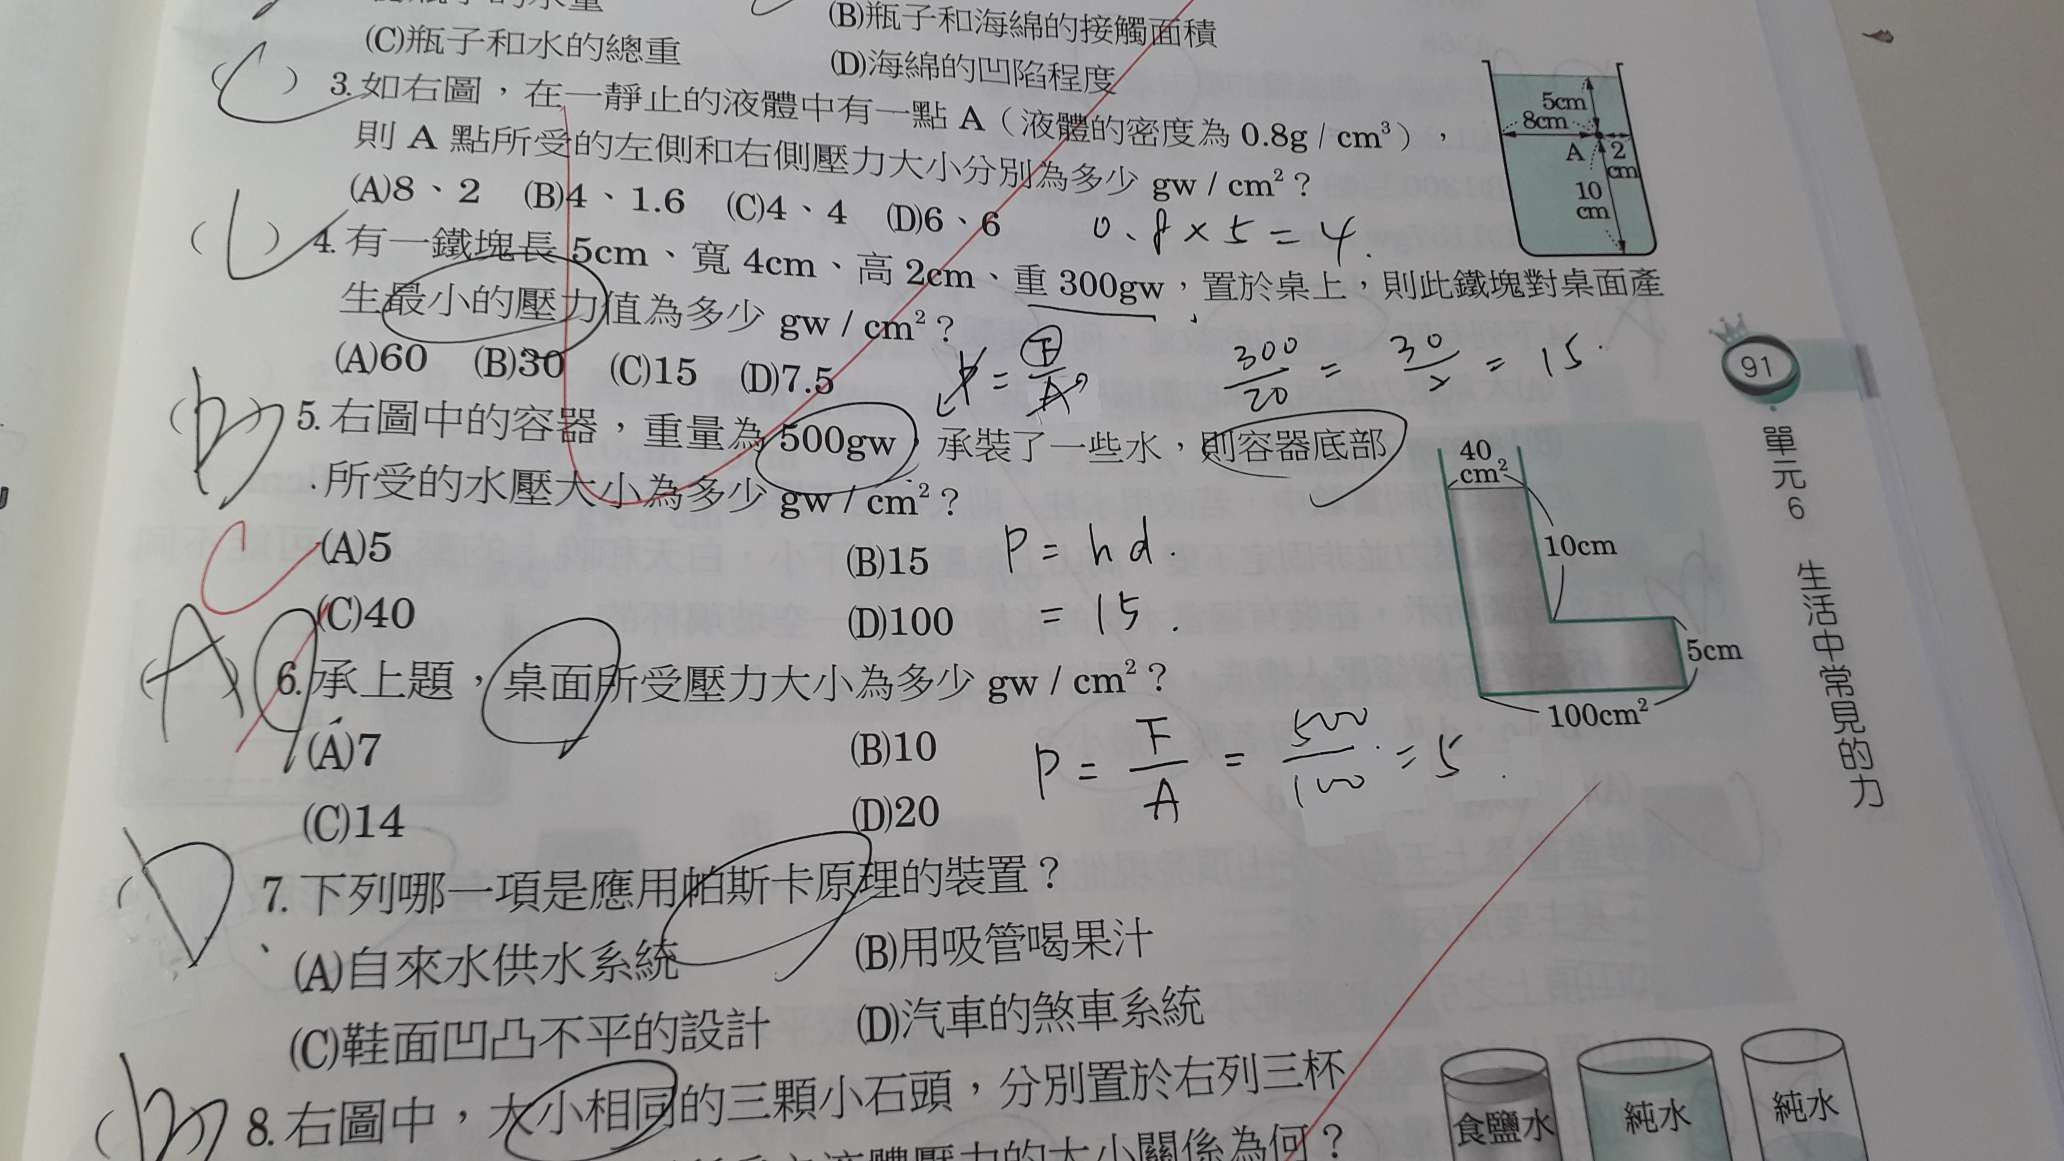 (B)瓶子和海綿的接觸面積
(C)瓶子和水的總重
(D)海綿的凹陷程度
(C) 3. 如右圖，在一靜止的液體中有一點 A（液體的密度為 0.8g / cm³），
則 A 點所受的左側和右側壓力大小分別為多少 gw / cm²？
(A)8、2 (B)4、1.6 (C)4、4 (D)6、6
0.8 × 5 = 4.
5cm
8cm
A
2
cm
10
cm
( ) 4. 有一鐵塊長 5cm、寬 4cm、高 2cm、重 300gw，置於桌上，則此鐵塊對桌面產
生最小的壓力值為多少 gw / cm²？
(A)60 (B)30 (C)15 (D)7.5
P = F/A
300/20 = 30/2 = 15.
(b) 5. 右圖中的容器，重量為 500gw，承裝了一些水，則容器底部
所受的水壓大小為多少 gw / cm²？
(A)5
(B)15
(C)40
(D)100
P = hd.
= 15.
C
40
cm²
10cm
5cm
100cm²
(A) 6. 承上題，桌面所受壓力大小為多少 gw / cm²？
(A)7
(B)10
(C)14
(D)20
P = F/A = 500/100 = 5.
(D) 7. 下列哪一項是應用帕斯卡原理的裝置？
(A)自來水供水系統
(B)用吸管喝果汁
(C)鞋面凹凸不平的設計
(D)汽車的煞車系統
(b) 8. 右圖中，大小相同的三顆小石頭，分別置於右列三杯
液體壓力的大小關係為何？
食鹽水
純水
純水
91
單元6 生活中常見的力